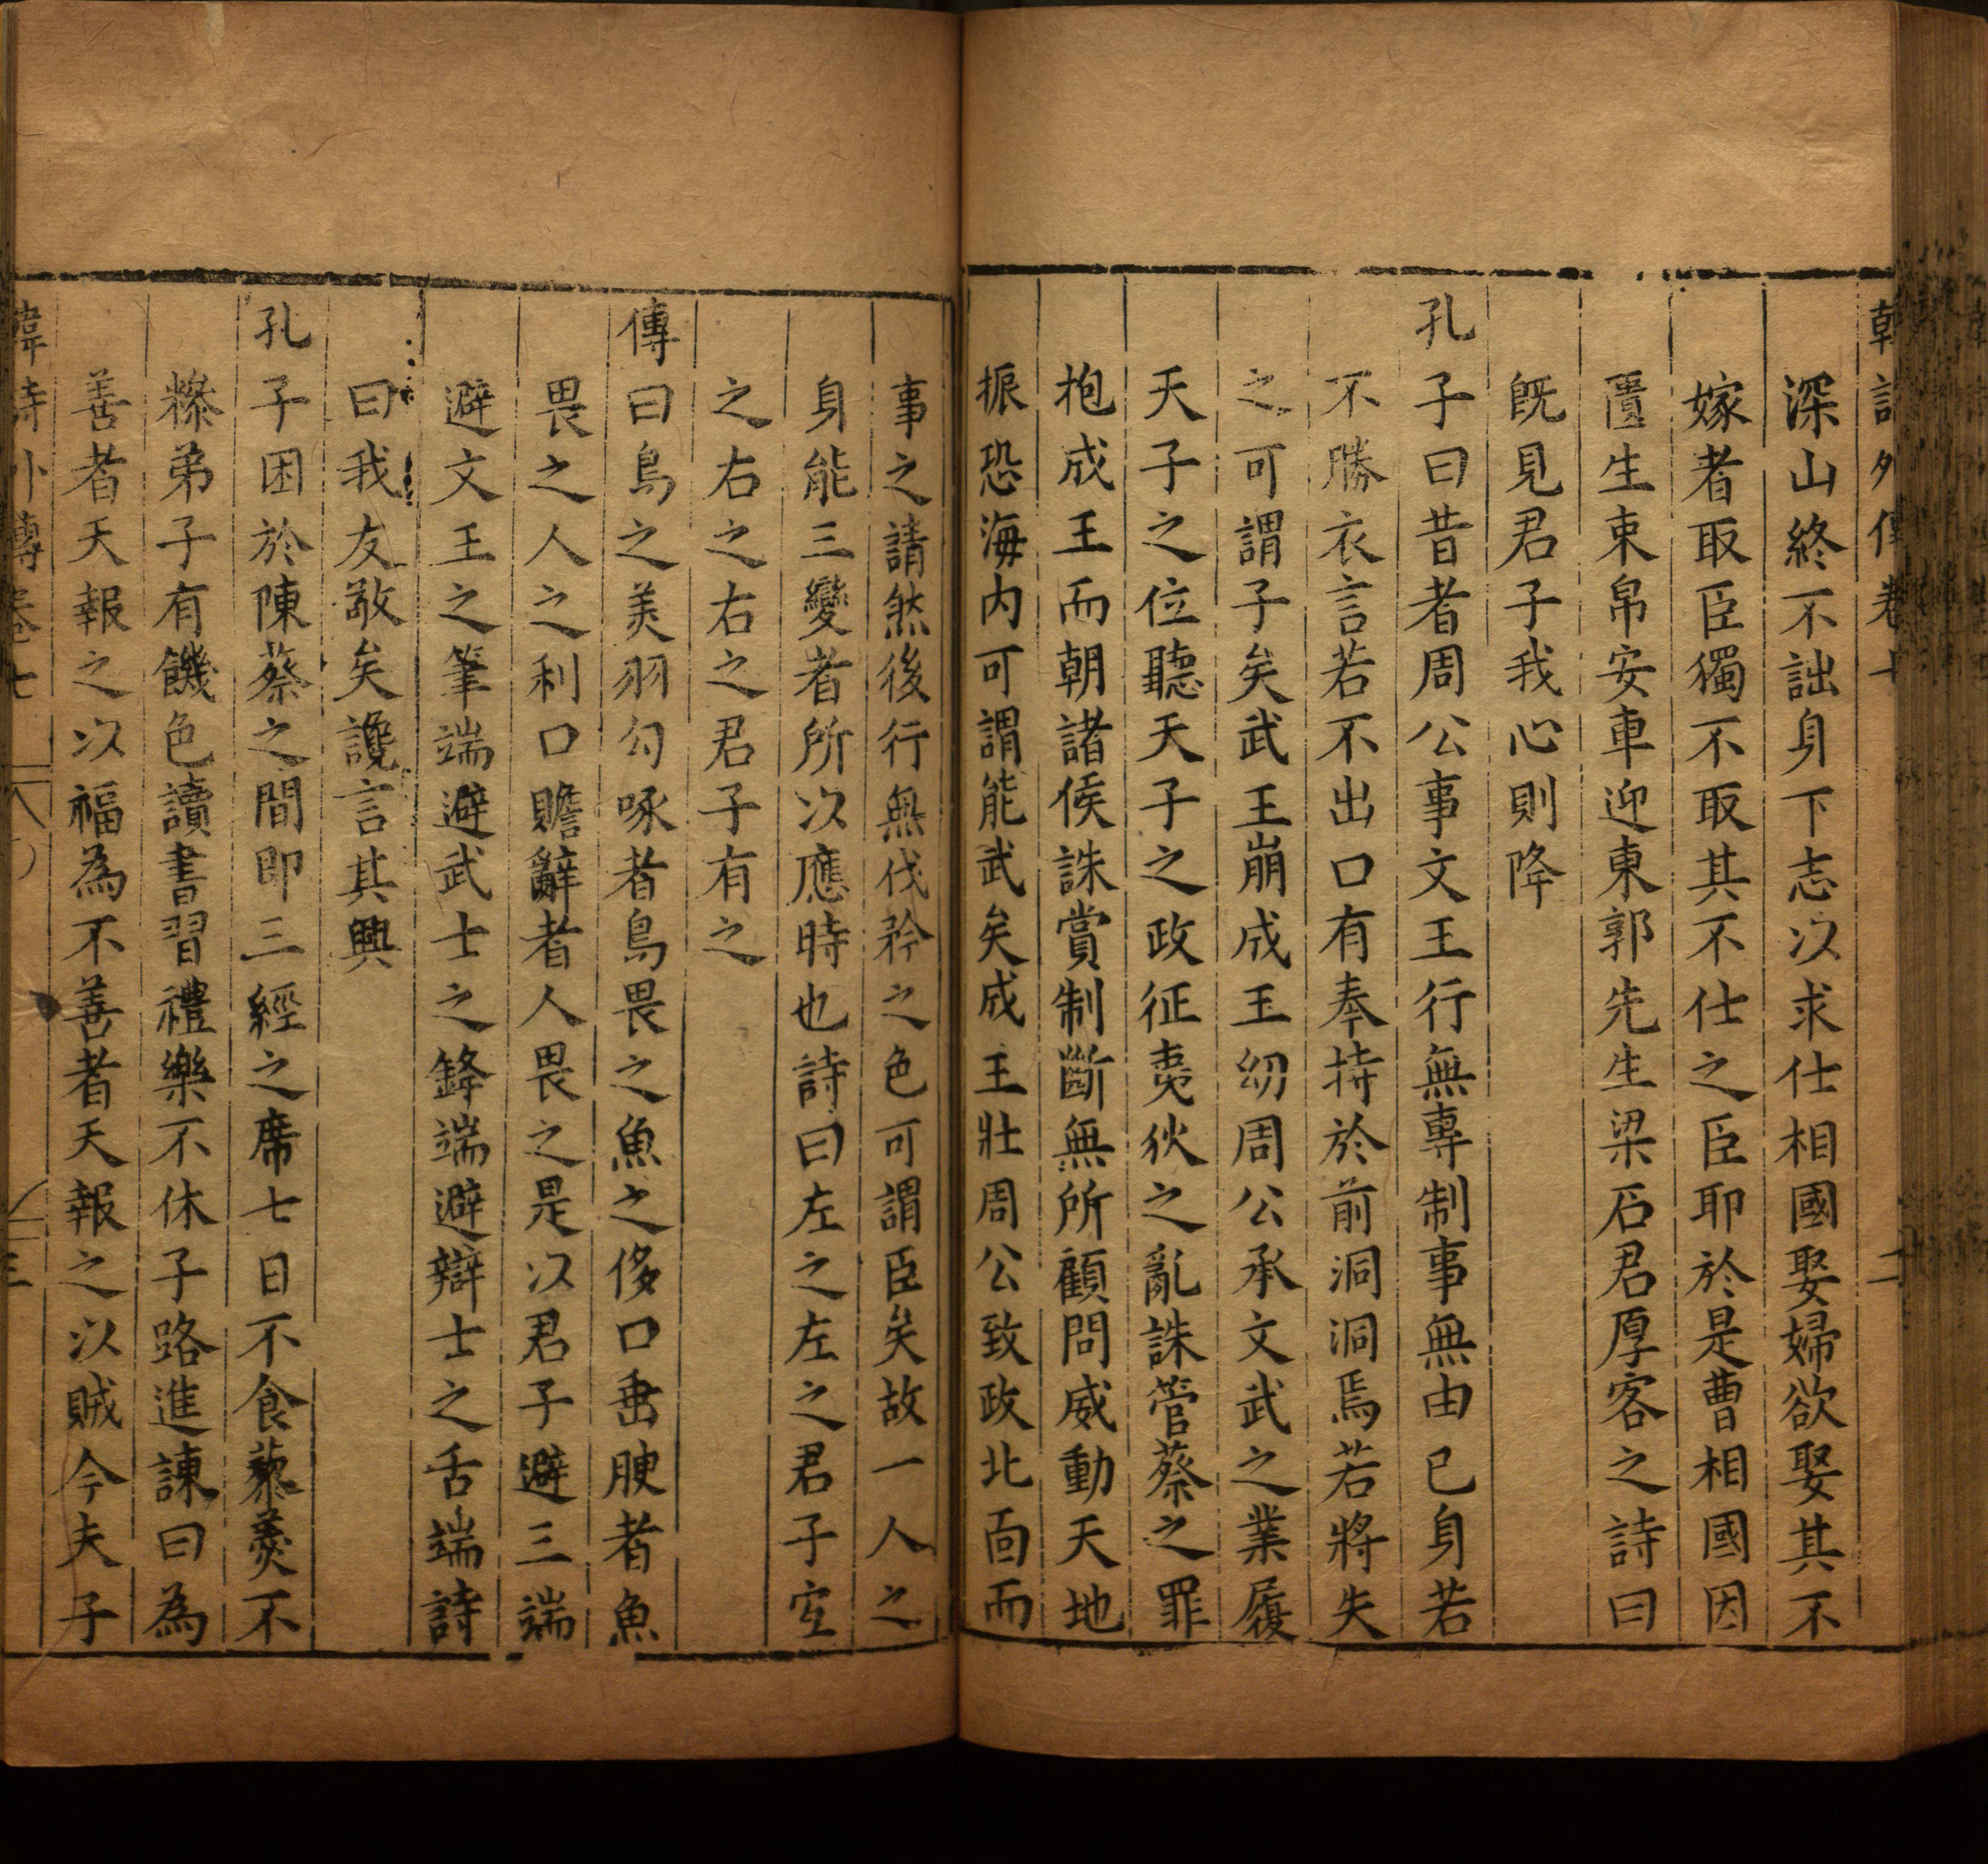 韓詩外傳卷七 二
深山終不詘身下志以求仕相國娶婦欲娶其不
嫁者取臣獨不取其不仕之臣耶於是曹相國因
匱生束帛安車迎東郭先生梁石君厚客之詩曰
旣見君子我心則降
孔子曰昔者周公事文王行無專制事無由已身若
不勝衣言若不出口有奉持於前洞洞焉若將失
之可謂子矣武王崩成王幼周公承文武之業履
天子之位聽天子之政征夷狄之亂誅管蔡之罪
抱成王而朝諸侯誅賞制斷無所顧問威動天地
振恐海内可謂能武矣成王壯周公致政北面而
事之請然後行無伐矜之色可謂臣矣故一人之
身能三變者所以應時也詩曰左之左之君子宜
之右之右之君子有之
傳曰鳥之美羽勾啄者鳥畏之魚之侈口垂腴者魚
畏之人之利口贍辭者人畏之是以君子避三端
避文王之筆端避武士之鋒端避辯士之舌端詩
曰我友敬矣讒言其興
孔子困於陳蔡之間即三經之席七日不食藜羹不
糝弟子有饑色讀書習禮樂不休子路進諫曰為
善者天報之以福為不善者天報之以賊今夫子
韓詩外傳卷七 三